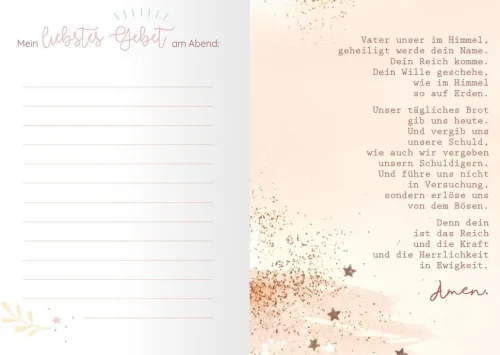 Mein liebstes Gebet am Abend:
Vater unser im Himmel,
geheiligt werde dein Name.
Dein Reich komme.
Dein Wille geschehe,
wie im Himmel
so auf Erden.
Unser tägliches Brot
gib uns heute.
Und vergib uns
unsere Schuld,
wie auch wir vergeben
unsern Schuldigern.
Und führe uns nicht
in Versuchung,
sondern erlöse uns
von dem Bösen.
Denn dein
ist das Reich
und die Kraft
und die Herrlichkeit
in Ewigkeit.
Amen.